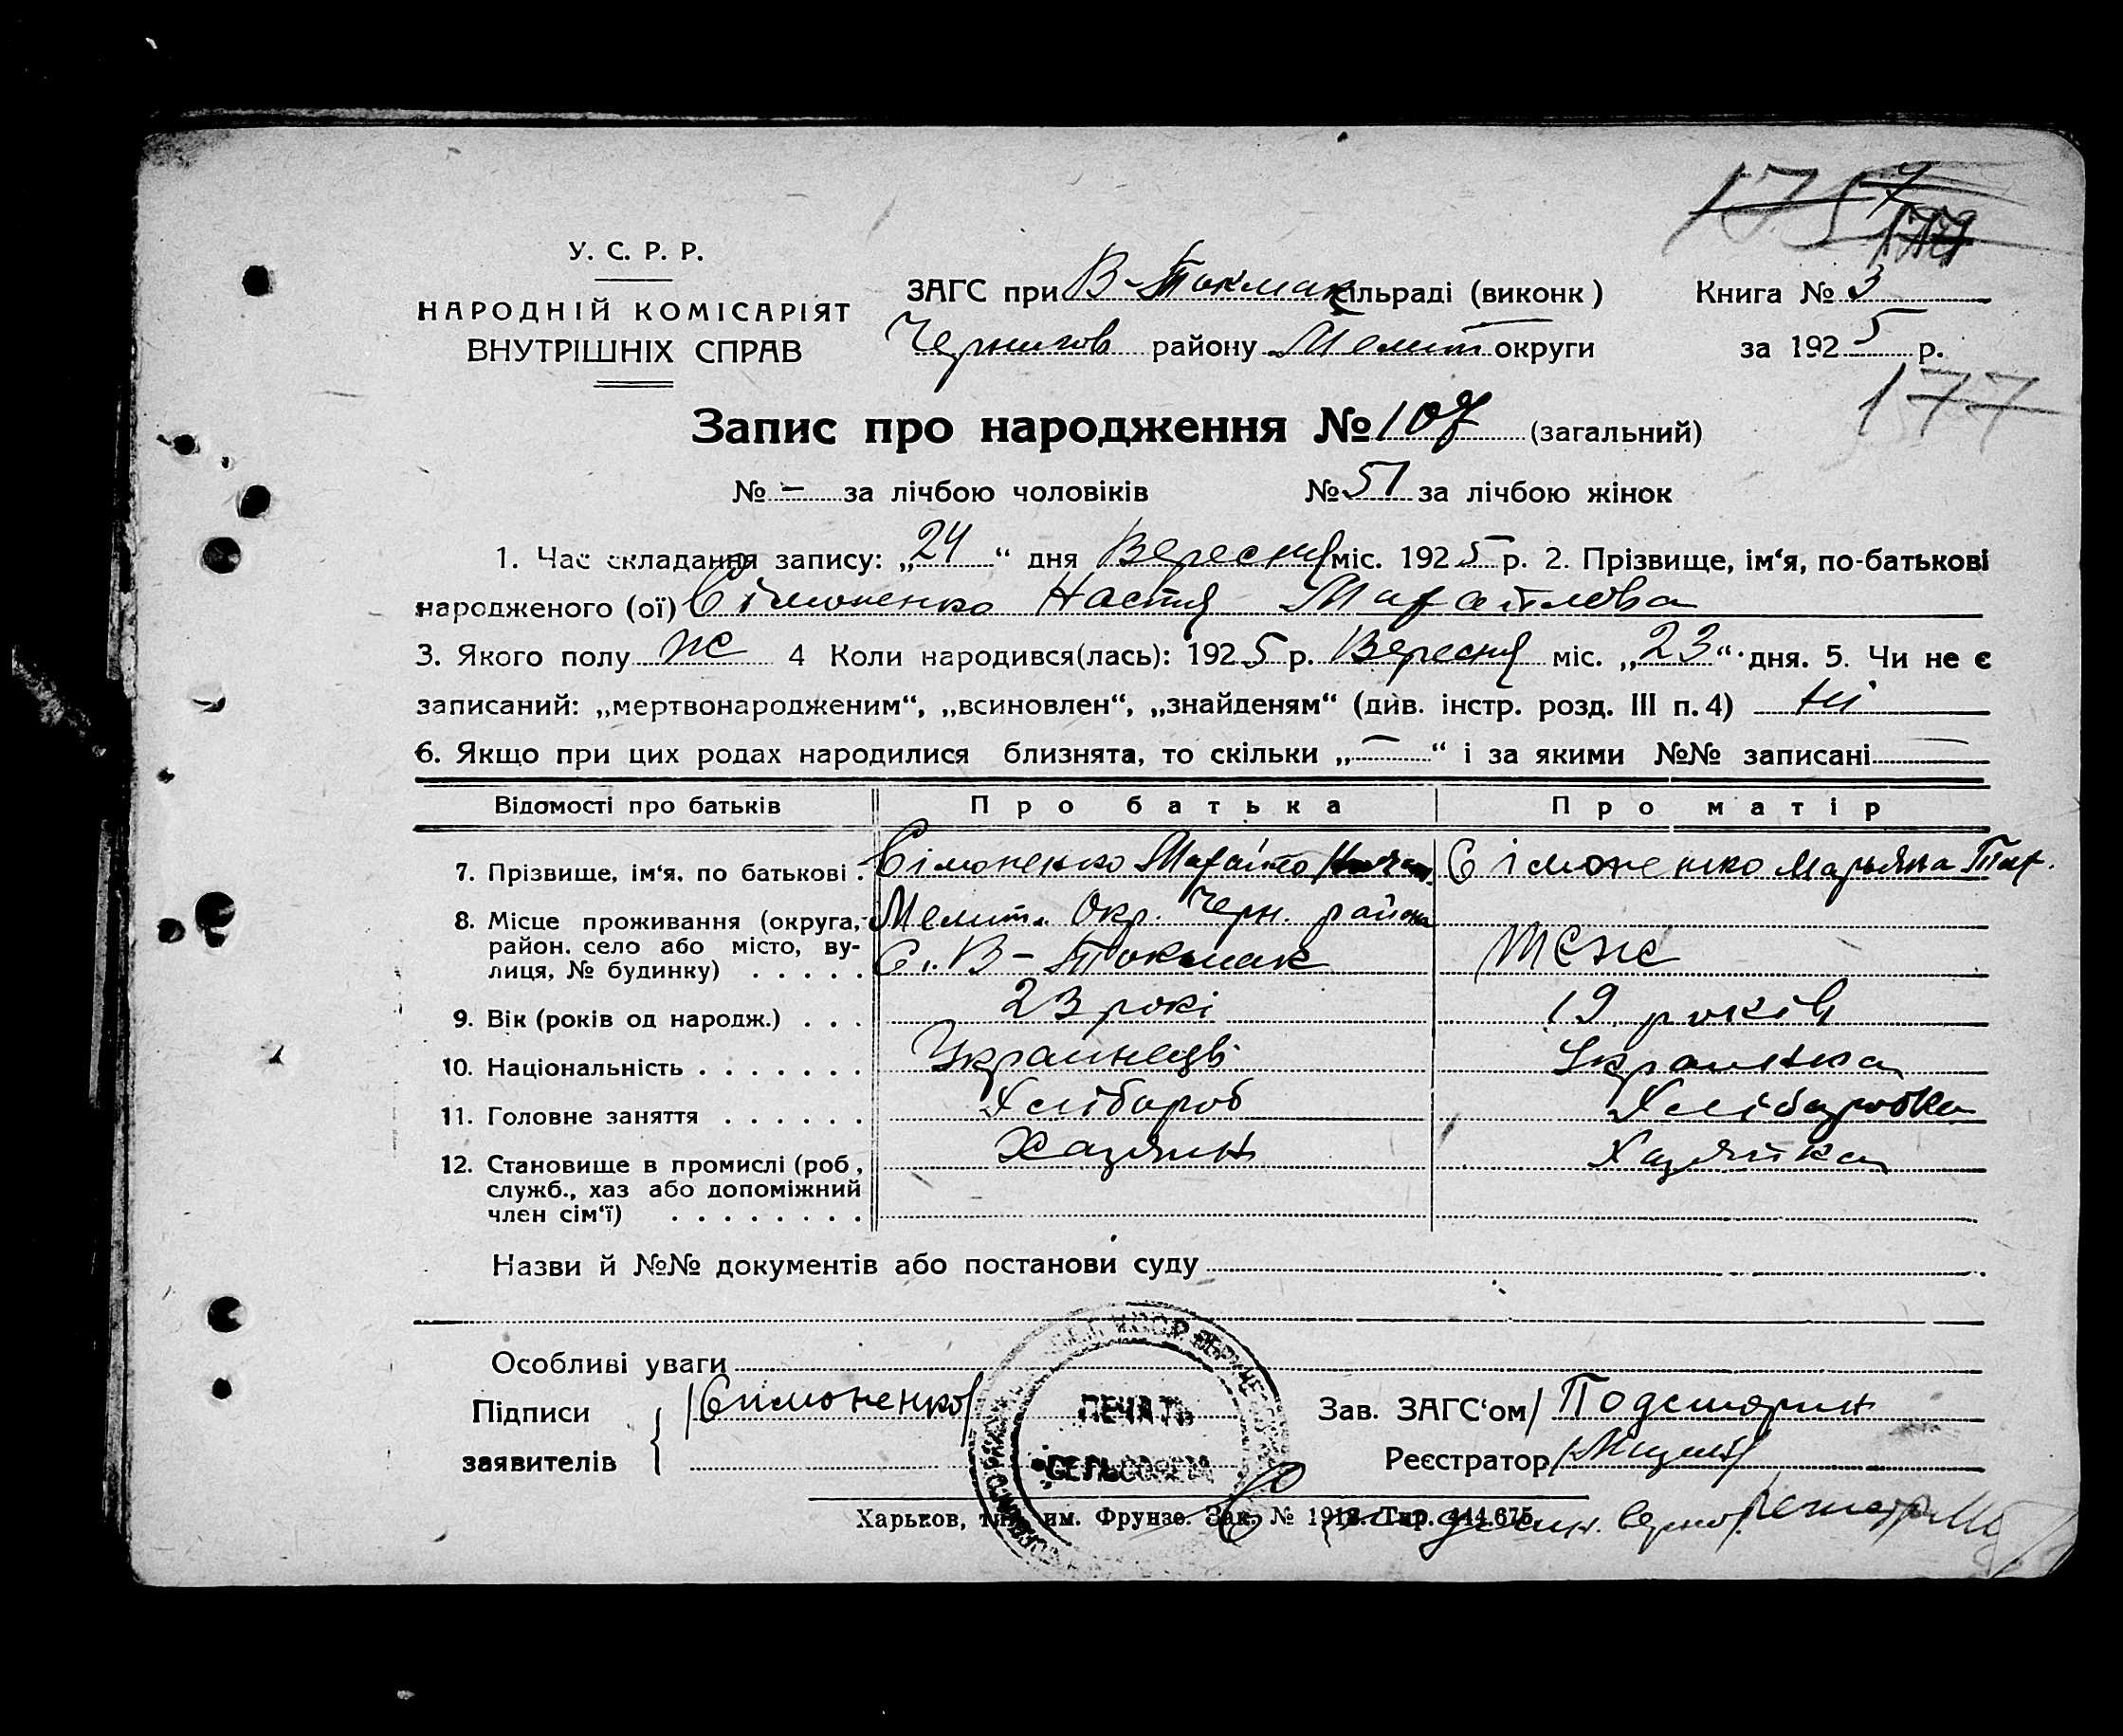 У. С. Р. Р.
НАРОДНІЙ КОМІСАРІЯТ
ВНУТРІШНІХ СПРАВ
ЗАГС при В-Токмак сільраді (виконк)
Книга № 3
Чернигов району Мелит округи
за 1925 р.
177
Запис про народження № 107 (загальний)
№ – за лічбою чоловіків № 51 за лічбою жінок
1. Час складання запису: „24“ дня Вересня міс. 1925 р. 2. Прізвище, ім‘я, по-батькові
народженого (ої) Сімоненко Настя Михайлова
3. Якого полу ж 4 Коли народився(лась): 1925 р. Вересня міс. „23“ дня. 5. Чи не є
записаний: „мертвонародженим“, „всиновлен“, „знайденям“ (див. інстр. розд. III п. 4) ні
6. Якщо при цих родах народилися близнята, то скільки „—“ і за якими №№ записані —
Відомості про батьків Про батька Про матір
7. Прізвище, ім‘я, по батькові . Сімоненко Михайло Сімоненко Марьяна
8. Місце проживання (округа, Мелит. Окр. Черн. района
район. село або місто, ву-
лиця, № будинку) . . . . . С. В-Токмак теж
9. Вік (років од народж.) . . . 23 рокі 19 років
10. Національність . . . . . . . Украінець Украінка
11. Головне заняття . . . . . . Хлібороб Хліборобка
12. Становище в промислі (роб, Хазяин Хазяйка
служб., хаз або допоміжний
член сім‘ї) . . . . . . . .
Назви й №№ документів або постанови суду
Особливі уваги
Підписи
заявителів
Симоненко
ПЕЧАТЬ
СЕЛЬСОВЕТА
Зав. ЗАГС‘ом
Реєстратор
Харьков, тип. им. Фрунзе. Зак. № 1918. Тир. 444.675.